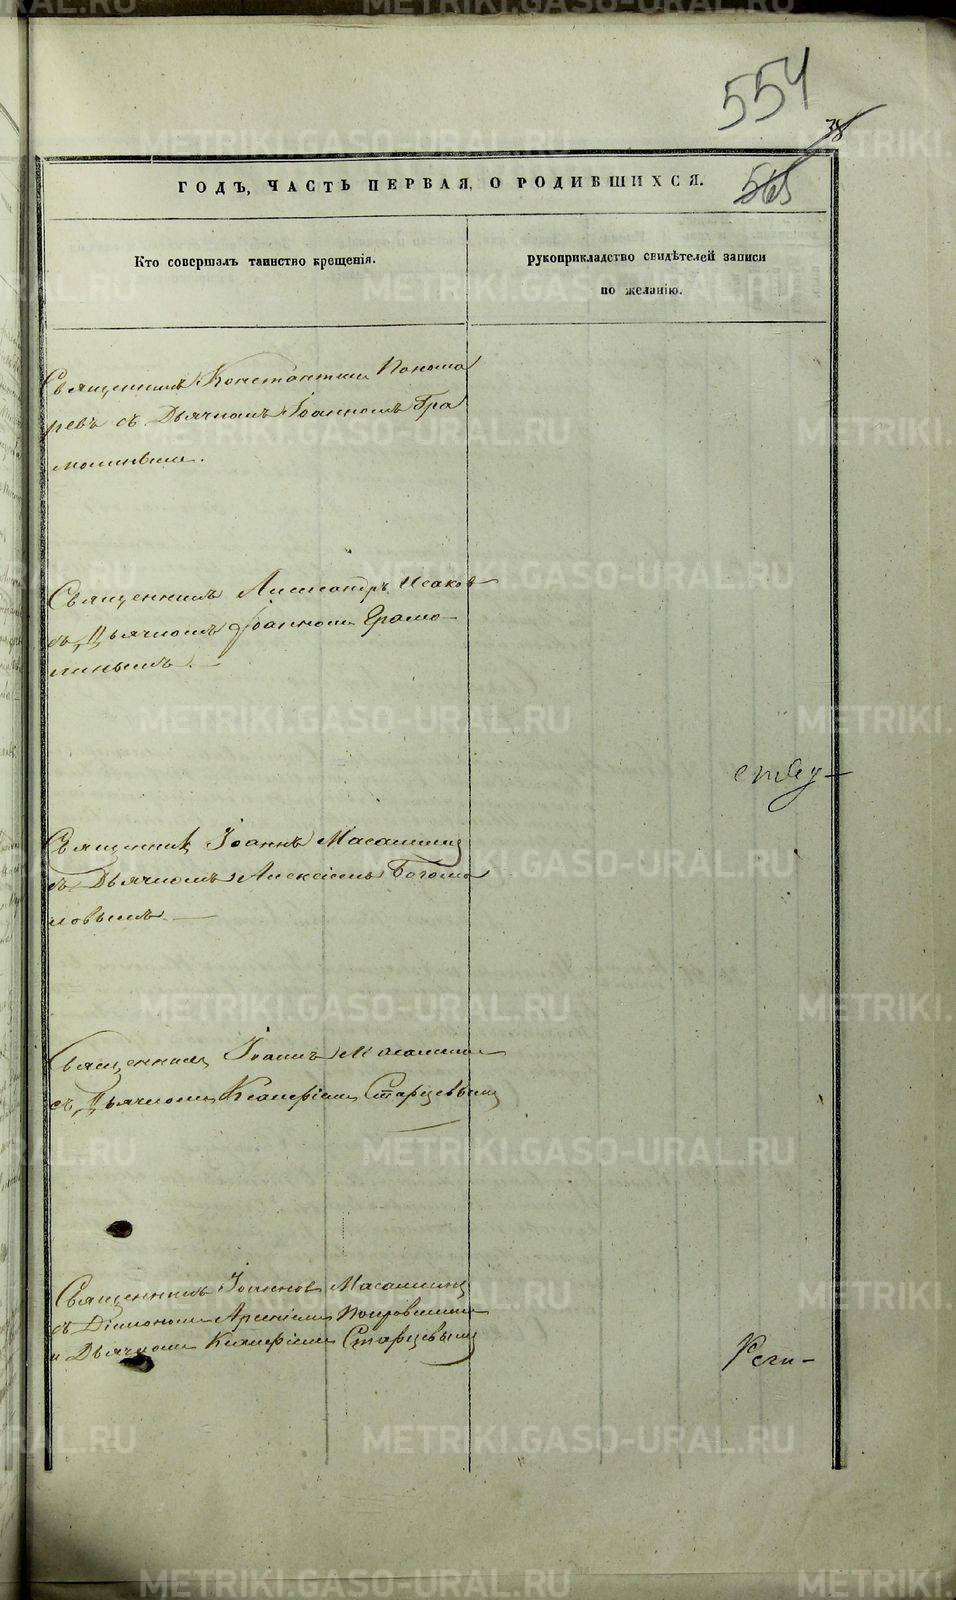 554
38
565
ГОДЪ, ЧАСТЬ ПЕРВАЯ, О РОДИВШИХСЯ.
Кто совершалъ таинство крещенія.
рукоприкладство свидѣтелей записи
по желанію.
Священникъ Константинъ Понома
ревъ съ Дьячкомъ Іоанномъ Гра
мотинымъ.
Священникъ Александръ Исаковъ
съ Дьячкомъ Іоанномъ Грамо-
тинымъ. —
Священникъ Іоаннъ
съ Дьячкомъ Алексіемъ Богомо
ловымъ. —
Священникъ Іоаннъ
съ Дьячкомъ Старцевымъ
Священникъ Іоаннъ
съ Діакономъ Арсеніемъ Покровскимъ
и Дьячкомъ Старцевымъ
METRIKI.GASO-URAL.RU